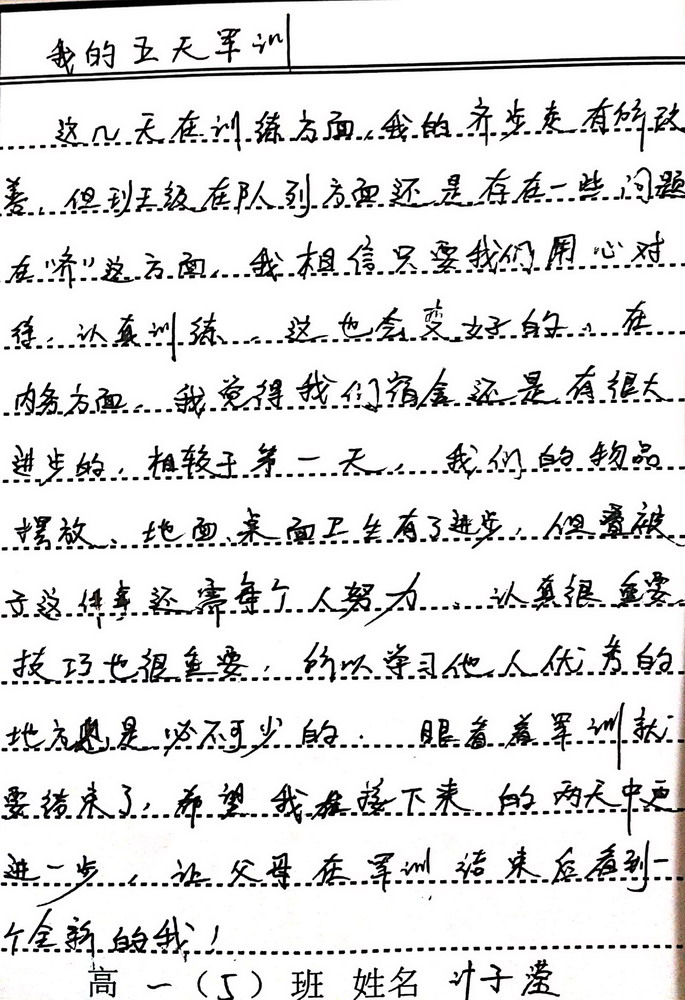 我的五天军训
这几天在训练方面,我的齐步走有所改
善,但到班级在队列方面还是存在一些问题
在“齐”这方面,我相信只要我们用心对
待,认真训练,这也会变好的。在
内务方面,我觉得我们宿舍还是有很大
进步的,相较于第一天,我们的物品
摆放、地面、桌面卫生有了进步,但叠被
子这件事还需每个人努力,认真很重要
技巧也很重要,所以学习他人优秀的
地方是必不可少的. 眼看着军训就
要结束了,希望我在接下来的两天中更
进一步,让父母在军训结束后看到一
个全新的我!
高一(5)班 姓名 叶子滢